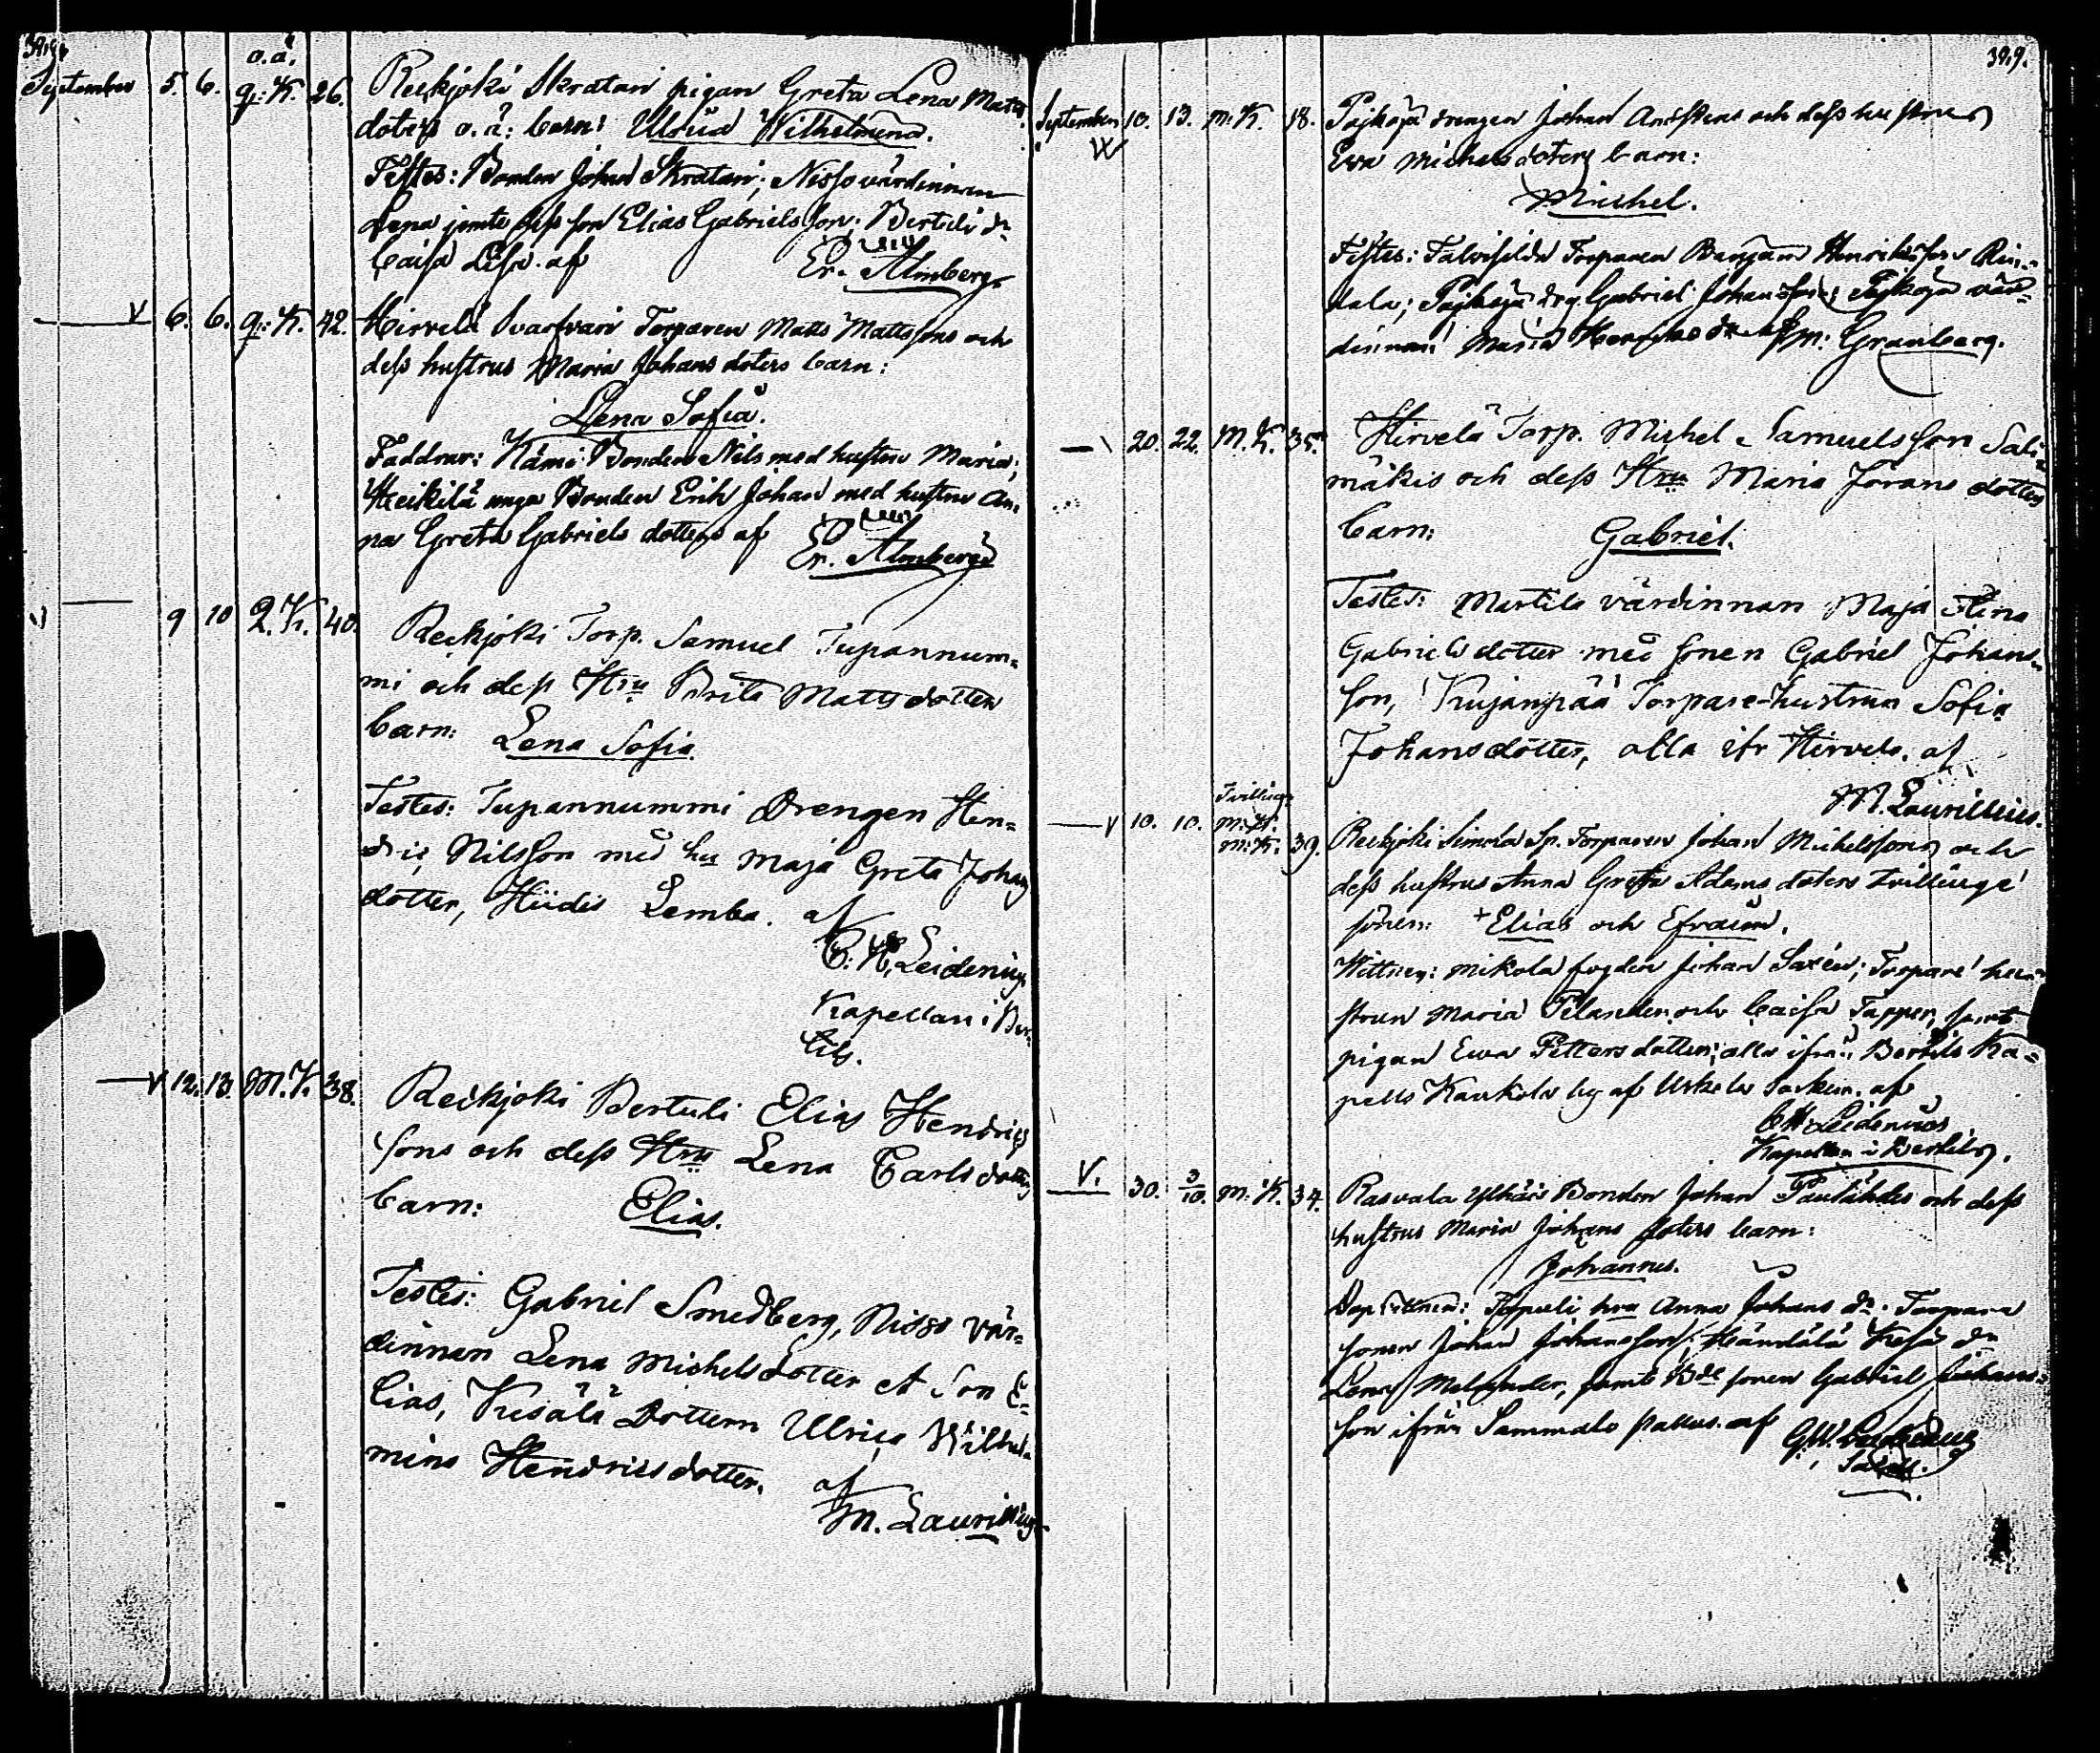 o.ä.
September 5. 6. q: K. 26. Reckjoki Skratari pigan Greta Lena Matts
doters o.ä: barn: Ulrica Wilhelmina.
Testes: Bonden Johan Skratari; Nisso värdinnan
Lena jemte dess son Elias Gabrielsson; Bertuli dr
Caisa Lisa. af Er. Almberg
V 6. 6. q: K. 42. Hirvelä Torparen Matts Mattssons och
dess hustrus Maria Johans doters barn:
Lena Sofia.
Faddrar: Hämi Bonden Nils med hustru Maria;
Heikilä unga Bonden Erik Johan med hustru An-
na Greta Gabriels dotter af Er. Almberg
9 10 Q. K. 40. Reckjoki Torp. Samuel Tupannum-
mi och dess Hru Brita Matts dotters
barn: Lena Sofia.
Testes: Tupannummi Drengen Hen-
dric Nilsson med hu Maja Greta Johans
dotter, Hiidis Lemba. af
C. H. Leidenius
Kapellan i Ber-
tils.
V. 12. 13. M. K. 38. Reckjoki Bertuli Elias Hendrics
sons och dess Hru Lena Carls dotters
barn: Elias.
Testes: Gabriel Smedberg, Nisso vär-
dinnan Lena Michelsdotter et Son E-
lias, Kesälä Dottern Ulrica Wilhel-
mina Hendricsdotter. af
M. Laurillius
399.
September 10. 13. m: K. 18. Pajkoja drengen Johan och dess hustrus
Ewa Michels doters barn:
Michel.
Testes: Torparen Benjam Henriksson Rin-
tala; Pajkoja drg. Gabriel Johansson; Pajkoja vär-
dinnan Maria af Granberg.
20. 22. M. K. 35. Hirvelä Torp. Michel Samuelsson Sali-
mäkis och dess Hru Maria Jörans dotters
barn: Gabriel.
Testes: Martila värdinnan Maja Stina
Gabriels dotter med sonen Gabriel Johans-
son, Kujanpää Torpare-hustrun Sofia
Johansdotter, alla ifr Hirvelä. af
M. Laurillius.
Tvilling
V 10. 10. m: K.
m: K. 39. Reckjoki Simola Sp. Torparen Johan Michelssons och
dess hustrus Anna Greta Adams doters tvillinge
söner: + Elias och Efraim.
Wittnen: Mikola fogden Johan Saxén; Torpare hu-
strun Maria Pilander och Caisa Tapper, samt
pigan Ewa Petters dotter; alla ifrån Bertils Ka-
pells Kaukola by af Uskela Sockn. af
C H Leidenius
Kapellan i Bertils.
V. 30. 3/10. m: K. 34. Rasvala Ylhäis Bonden Johan och dess
hustrus Maria Johans doters barn:
Johannes.
Dop vittnen: hru Anna Johans dr. Torpare
sonen Johan Johansson; dr
Lena Melander, samt Bde sonen Gabriel Johans-
son ifrån Sammalo af